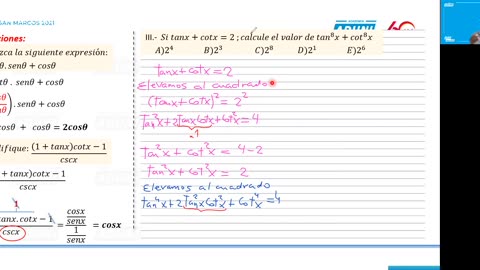 SAN MARCOS 2021
ADUNI
ciones:
zca la siguiente expresión:
θ.senθ + cosθ
tθ . senθ + cosθ
.senθ + cosθ
cosθ + cosθ = 2cosθ
plifique: (1 + tanx)cotx − 1
cscx
tanx)cotx − 1
cscx
1
tanx.cotx − 1
cscx
= cosx/senx
1/senx
= cosx
III.- Si tanx + cotx = 2 ; calcule el valor de tan⁸x + cot⁸x
A)2⁴ B)2³ C)2⁸ D)2¹ E)2⁶
tanx + cotx = 2
Elevamos al cuadrado
(tanx + cotx)² = 2²
tan²x + 2tanx cotx + cot²x = 4
1
tan²x + cot²x = 4 − 2
tan²x + cot²x = 2
Elevamos al cuadrado
tan⁴x + 2tan²x cot²x + cot⁴x = 4